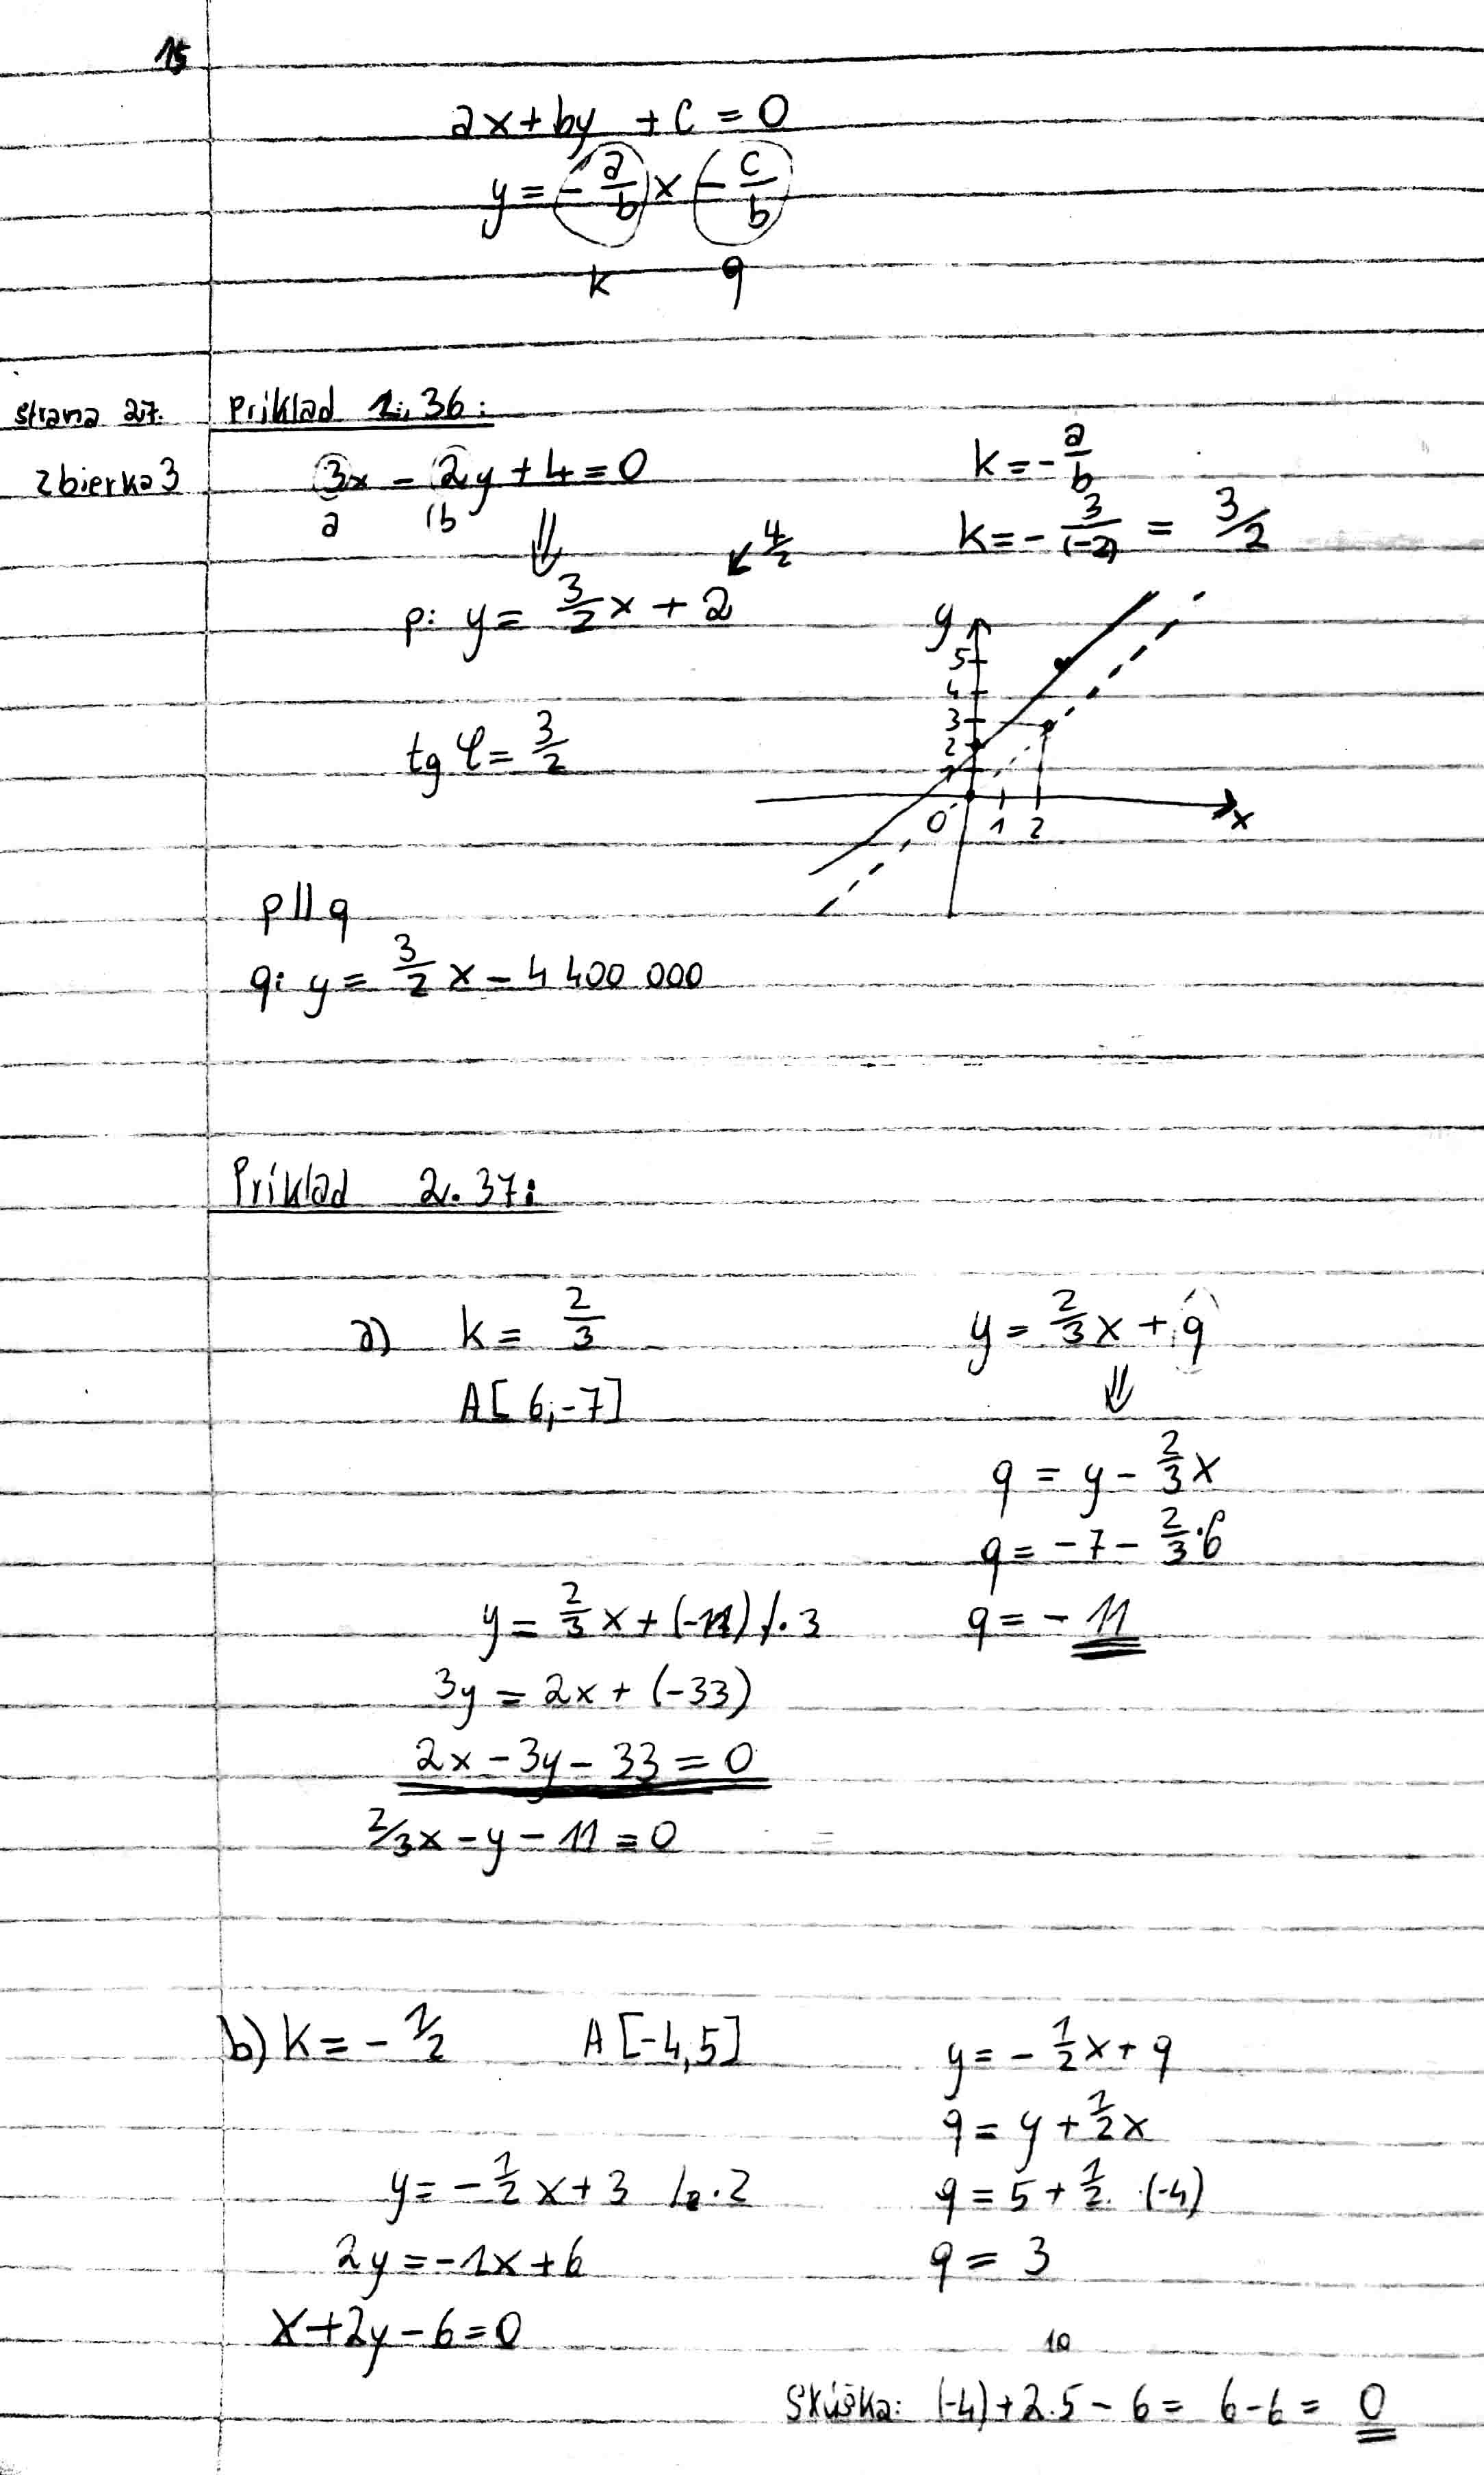 15
ax+by +c=0
y = -a/b x - c/b
k q
strana 27. Príklad 2.36:
Zbierka 3 3x - 2y + 4 = 0
a b
k = -a/b
k = - 3/(-2) = 3/2
4/2
p: y = 3/2 x + 2
tg φ = 3/2
y
5
4
3
2
1
0 1 2 x
p || q
q: y = 3/2 x - 4 400 000
Príklad 2.37:
a) k = 2/3
A[6,-7]
y = 2/3 x + q
⇓
q = y - 2/3 x
q = -7 - 2/3 · 6
q = -11
y = 2/3 x + (-11) /·3
3y = 2x + (-33)
2x - 3y - 33 = 0
2/3x - y - 11 = 0
b) k = - 1/2 A[-4,5]
y = - 1/2 x + q
q = y + 1/2 x
q = 5 + 1/2 · (-4)
q = 3
y = - 1/2 x + 3 /·2
2y = -1x + 6
x + 2y - 6 = 0
10
Skúška: (-4) + 2.5 - 6 = 6-6 = 0